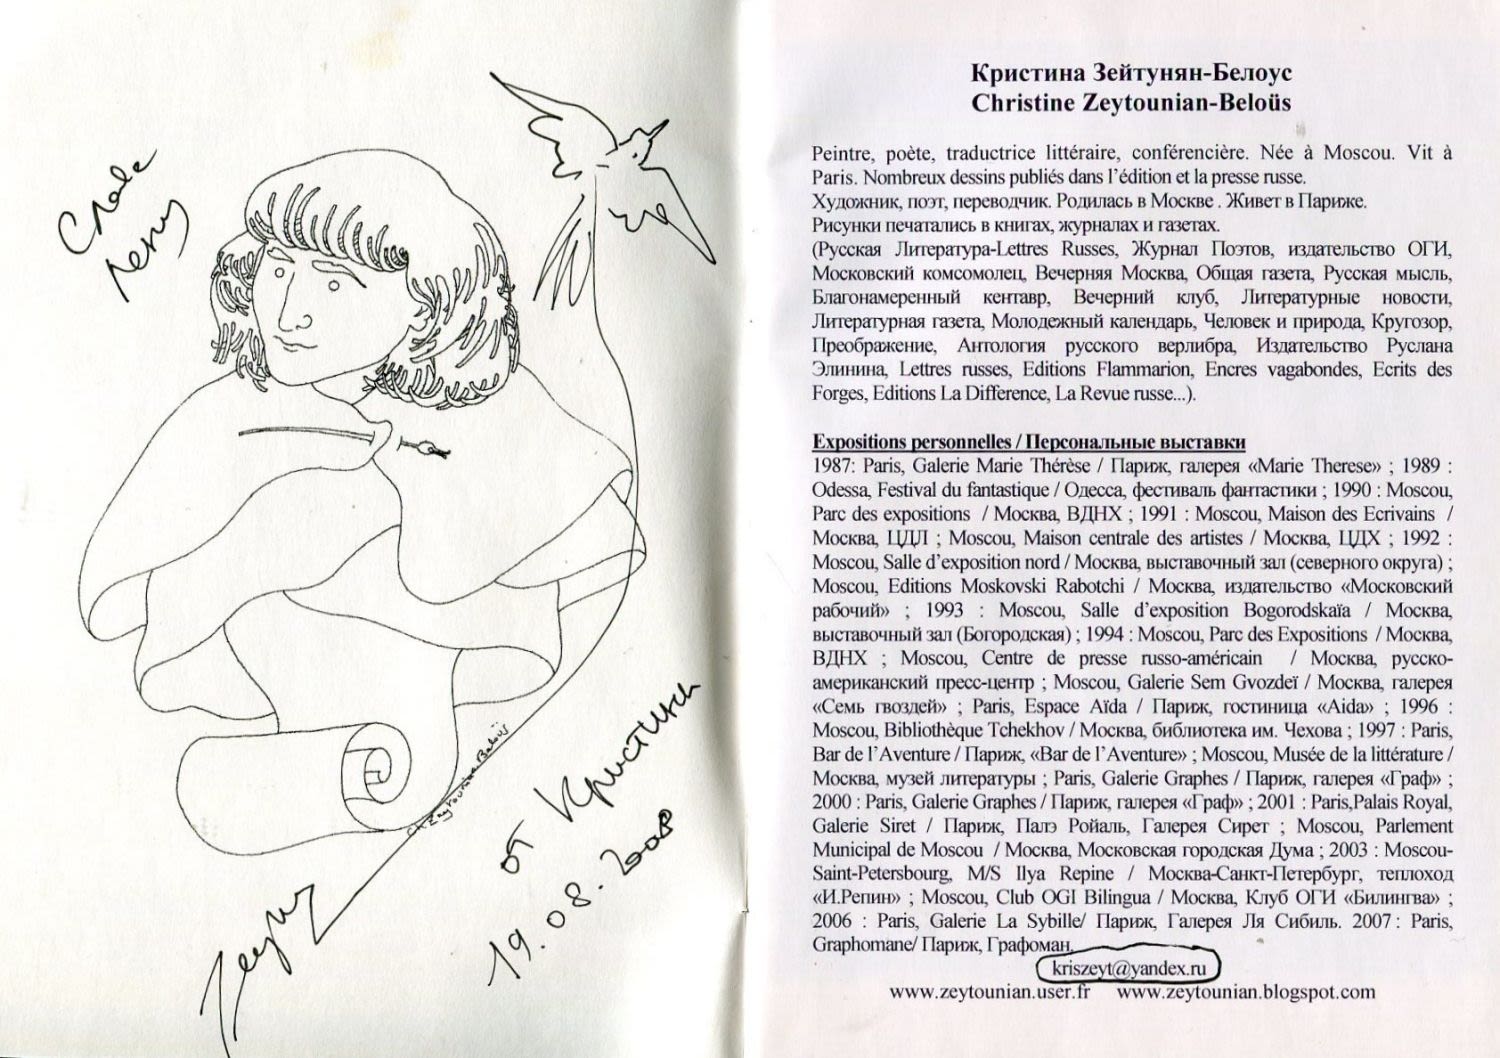 Славе
Лену
Ch Zeytounian-Beloüs
от Кристины
19.08.2008
Кристина Зейтунян-Белоус
Christine Zeytounian-Beloüs
Peintre, poète, traductrice littéraire, conférencière. Née à Moscou. Vit à
Paris. Nombreux dessins publiés dans l’édition et la presse russe.
Художник, поэт, переводчик. Родилась в Москве . Живет в Париже.
Рисунки печатались в книгах, журналах и газетах.
(Русская Литература-Lettres Russes, Журнал Поэтов, издательство ОГИ,
Московский комсомолец, Вечерняя Москва, Общая газета, Русская мысль,
Благонамеренный кентавр, Вечерний клуб, Литературные новости,
Литературная газета, Молодежный календарь, Человек и природа, Кругозор,
Преображение, Антология русского верлибра, Издательство Руслана
Элинина, Lettres russes, Editions Flammarion, Encres vagabondes, Ecrits des
Forges, Editions La Différence, La Revue russe...).
Expositions personnelles / Персональные выставки
1987: Paris, Galerie Marie Thérèse / Париж, галерея «Marie Therese» ; 1989 :
Odessa, Festival du fantastique / Одесса, фестиваль фантастики ; 1990 : Moscou,
Parc des expositions / Москва, ВДНХ ; 1991 : Moscou, Maison des Ecrivains /
Москва, ЦДЛ ; Moscou, Maison centrale des artistes / Москва, ЦДХ ; 1992 :
Moscou, Salle d’exposition nord / Москва, выставочный зал (северного округа) ;
Moscou, Editions Moskovski Rabotchi / Москва, издательство «Московский
рабочий» ; 1993 : Moscou, Salle d’exposition Bogorodskaïa / Москва,
выставочный зал (Богородская) ; 1994 : Moscou, Parc des Expositions / Москва,
ВДНХ ; Moscou, Centre de presse russo-américain / Москва, русско-
американский пресс-центр ; Moscou, Galerie Sem Gvozdeï / Москва, галерея
«Семь гвоздей» ; Paris, Espace Aïda / Париж, гостиница «Aida» ; 1996 :
Moscou, Bibliothèque Tchekhov / Москва, библиотека им. Чехова ; 1997 : Paris,
Bar de l’Aventure / Париж, «Bar de l’Aventure» ; Moscou, Musée de la littérature /
Москва, музей литературы ; Paris, Galerie Graphes / Париж, галерея «Граф» ;
2000 : Paris, Galerie Graphes / Париж, галерея «Граф» ; 2001 : Paris,Palais Royal,
Galerie Siret / Париж, Палэ Ройаль, Галерея Сирет ; Moscou, Parlement
Municipal de Moscou / Москва, Московская городская Дума ; 2003 : Moscou-
Saint-Petersbourg, M/S Ilya Repine / Москва-Санкт-Петербург, теплоход
«И.Репин» ; Moscou, Club OGI Bilingua / Москва, Клуб ОГИ «Билингва» ;
2006 : Paris, Galerie La Sybille/ Париж, Галерея Ля Сибиль. 2007 : Paris,
Graphomane/ Париж, Графоман.
kriszeyt@yandex.ru
www.zeytounian.user.fr www.zeytounian.blogspot.com